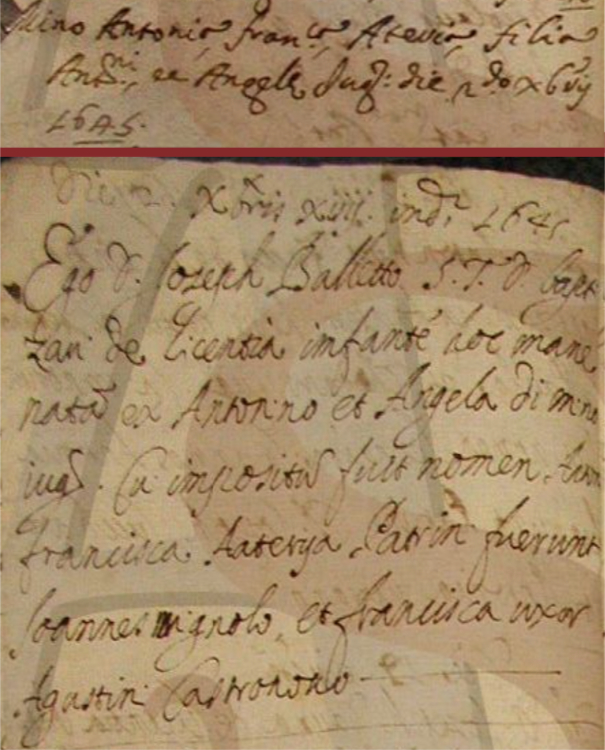 Mino Antonia Fran.ca Ateria filia
Ant.ni et Angele Jug: die 2.do xbris
1645.
Die 2. Xbris xiiij. ind. 1645.
Ego D. Joseph Balletto S.T.D. bapti
zavi de licentia infantē hoc mane
natā ex Antonino et Angela di mino
iug. Cui impositū fuit nomen Anton
francisca. Patrin fuerunt
Joannes mignolo, et francisca uxor
Agustini Castronovo